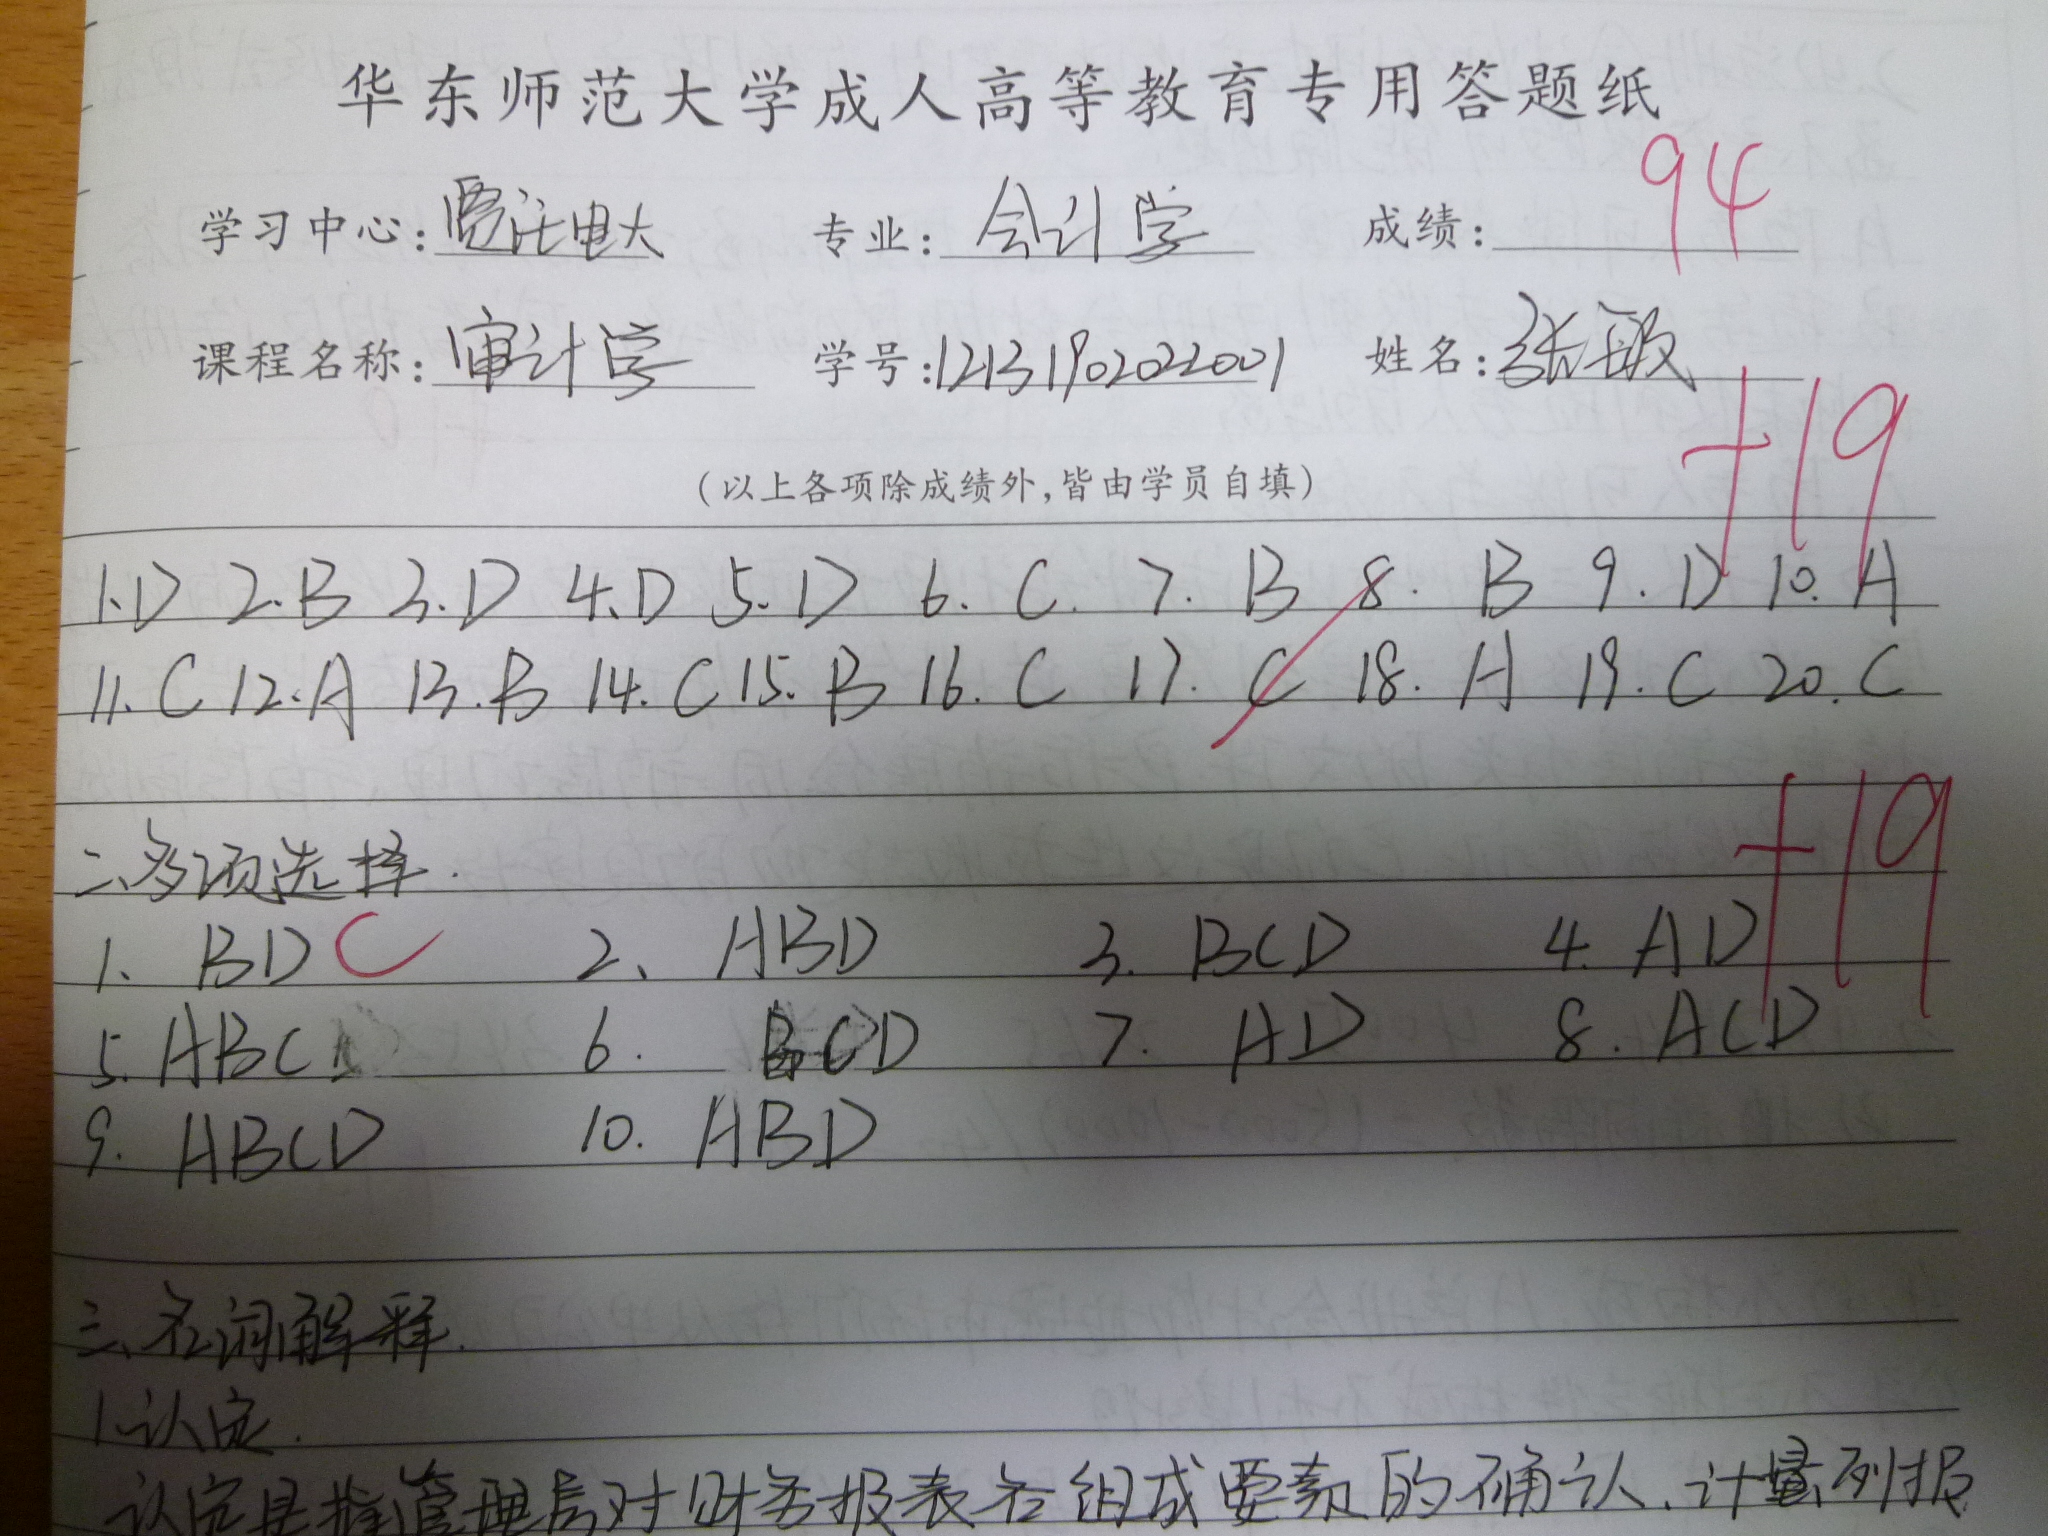 华东师范大学成人高等教育专用答题纸
学习中心: 电大 专业: 会计学 成绩: 94
课程名称: 审计学 学号: 12131902022001 姓名: 张敏
+19
(以上各项除成绩外,皆由学员自填)
1.D 2.B 3.D 4.D 5.D 6.C. 7.B 8.B 9.D 10.A
11.C 12.A 13.B 14.C 15.B 16.C 17.C 18.A 19.C 20.C
+19
二、多项选择.
1、BD C 2、ABD 3.BCD 4.AD
5.ABC 6.BCD 7.AD 8.ACD
9.ABCD 10.ABD
三、名词解释.
1.认定.
认定是指管理层对财务报表各组成要素的确认、计量、列报